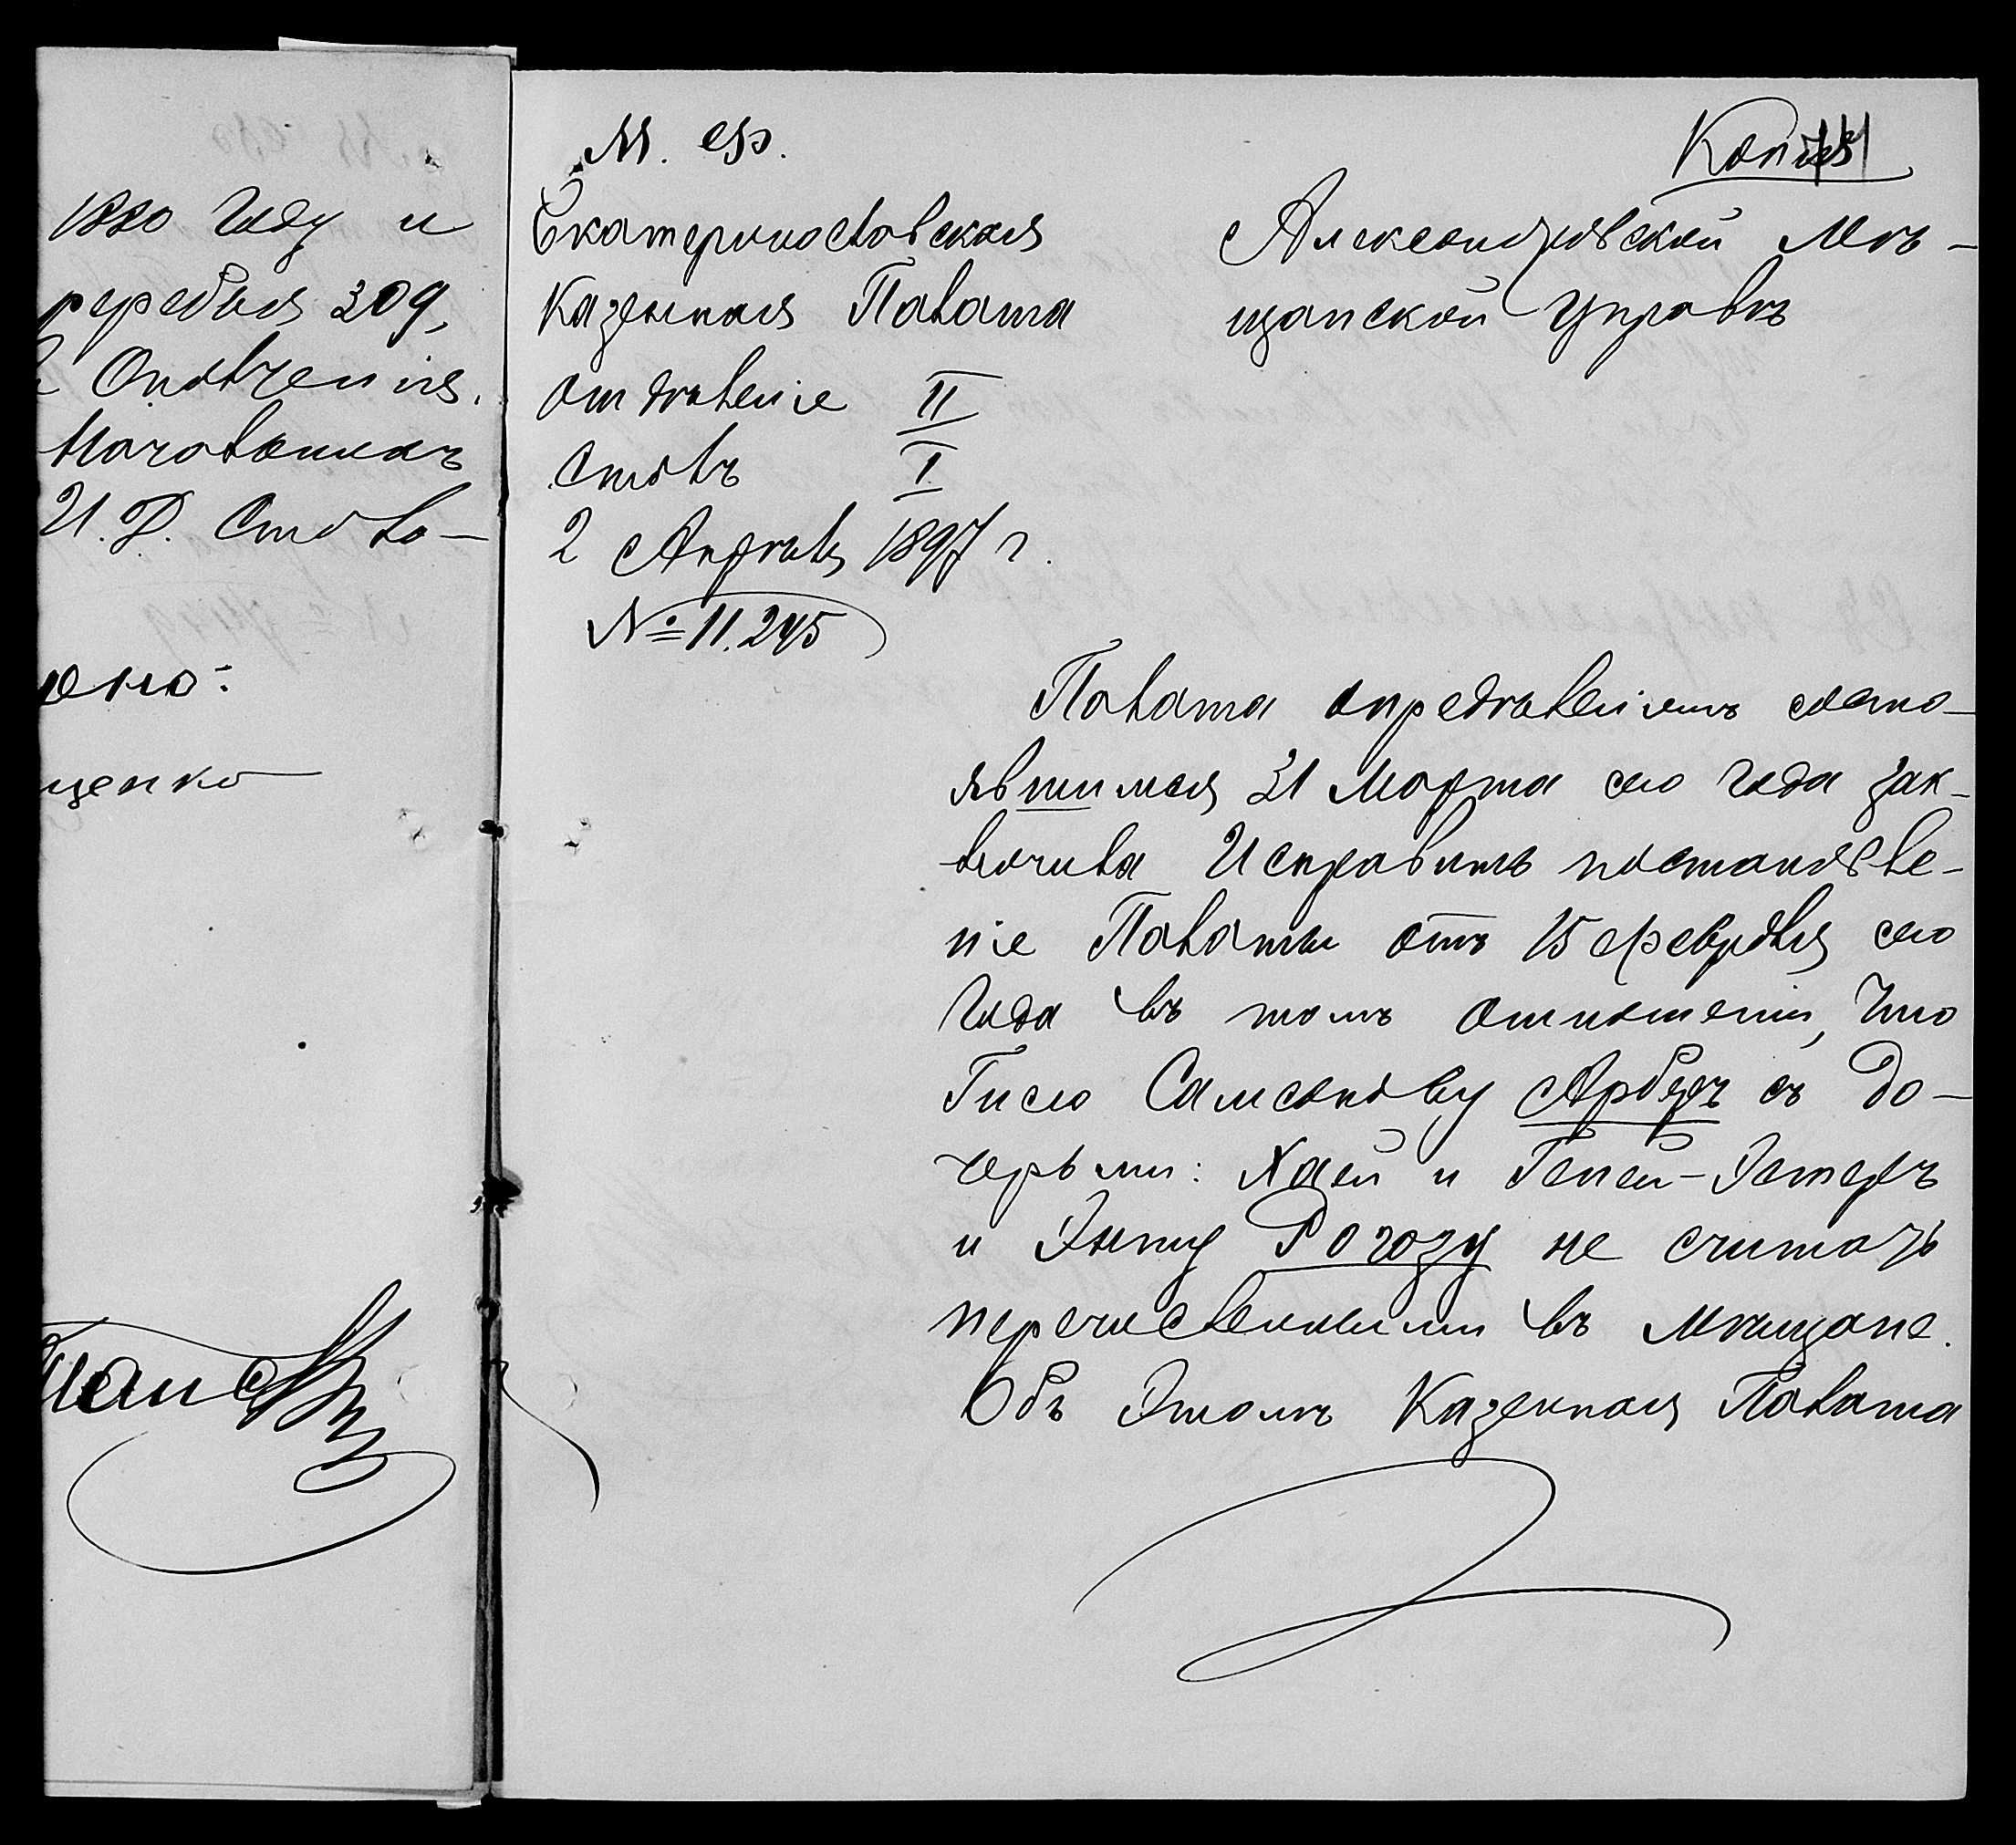 1880 году и
жеребья 209,
Ополченія.
Ματовомъ
И. Д. Столо-
рено:
щенко
М. Ф.
Копія
Екатеринославская
Казенная Палата
отдѣленіе II
столъ I
2 Апрѣля 1897 г.
№ 11.245
Александровской Мѣ-
щанской Управѣ
Палата опредѣленіемъ состо-
явшимся 31 Марта сего года зак-
лючила Исправить постановле-
ніе Палаты отъ 15 февраля сего
года въ томъ отношеніи, что
Гисю Самсонову Арберъ съ до-
черьми: Хаей и Геней-Эстеръ
и Энту Рогозу не считать
перечисленными въ мѣщане.
Объ этомъ Казенная Палата